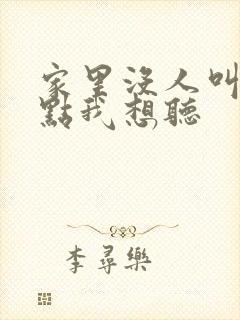 家里沒人叫
點我想聽
李尋樂